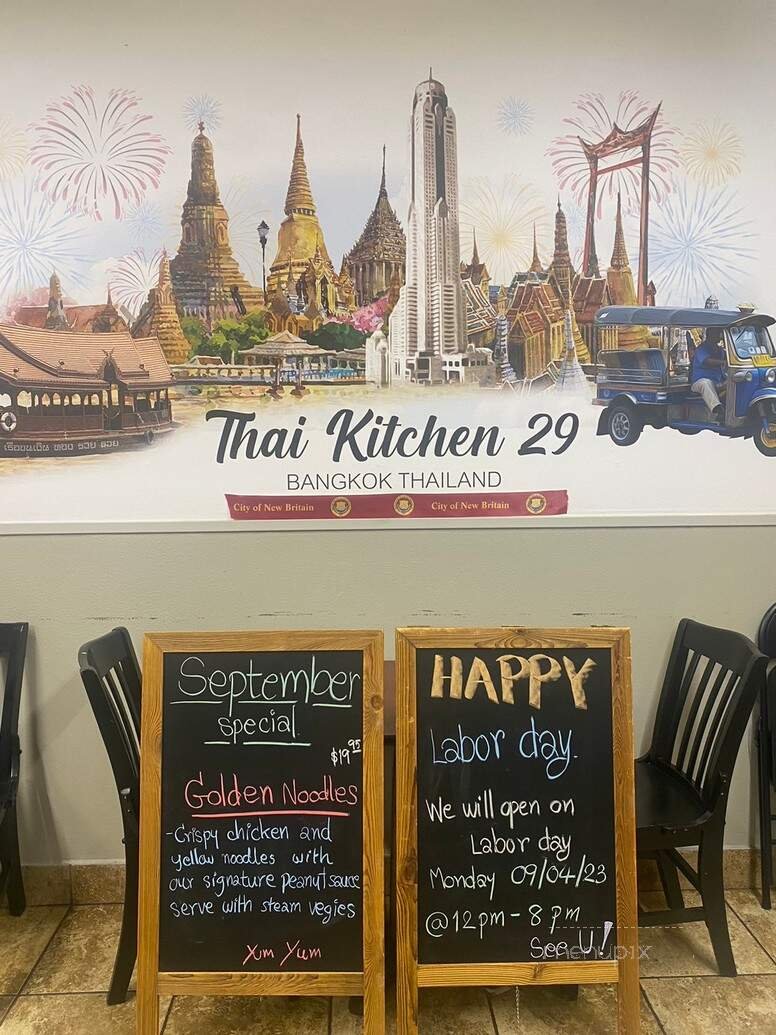 Thai Kitchen 29
BANGKOK THAILAND
City of New Britain City of New Britain
September
special
$19.95
Golden Noodles
-Crispy chicken and
yellow noodles with
our signature peanut sauce
serve with steam vegies
Yum Yum
HAPPY
Labor day.
We will open on
Labor day
Monday 09/04/23
@12pm-8pm
See U!
menupix